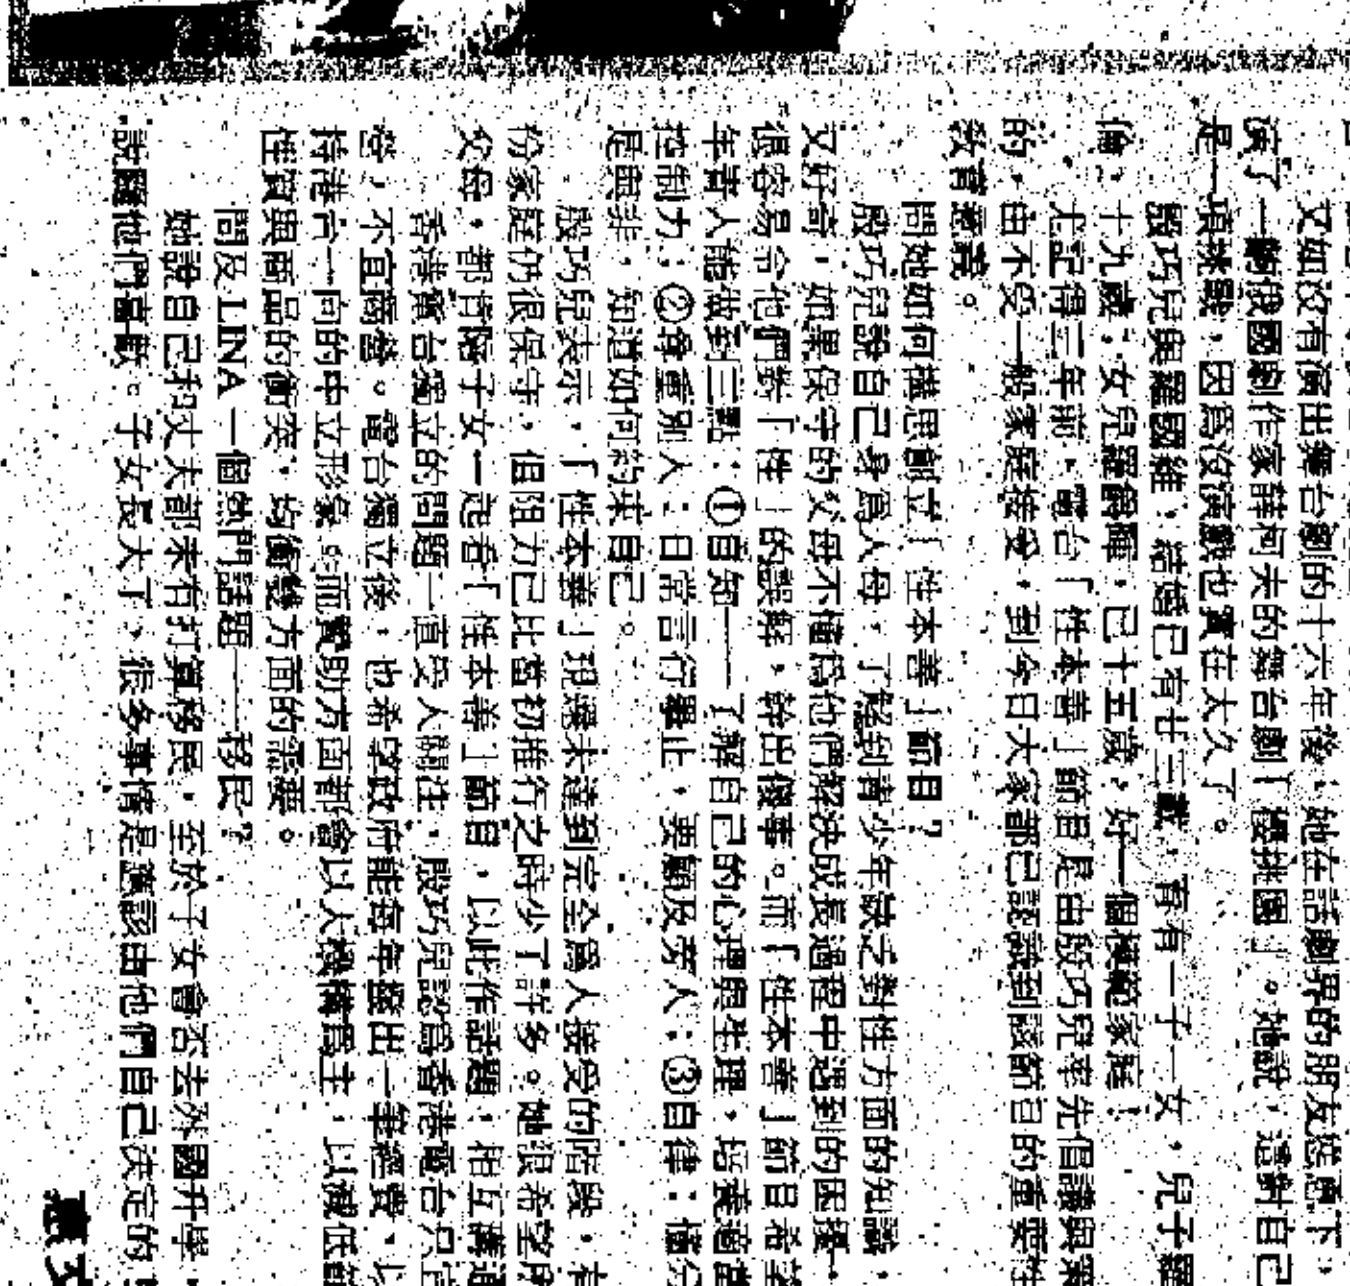 又如沒有演出舞台劇的十六年後，她在話劇界的朋友慫恿下，
演了一齣俄國劇作家薛柯夫的舞台劇「櫻桃園」。她說，這對自己
是一項挑戰，因爲沒演戲也實在太久了。
殷巧兒與羅國維，結婚已有廿三載，育有一子一女，兒子羅
倫，十九歲；女兒羅爵暉，已十五歲，好一個模範家庭！
尤記得三年前，電台「性本善」節目是由殷巧兒率先倡議與策
的，由不受一般家庭接受，到今日大家都已認識到該節目的重要性
教育意義。
問她如何構思創立「性本善」節目？
殷巧兒說自己身爲人母，了解到青少年缺乏對性方面的知識，
又好奇，如果保守的父母不懂爲他們解決成長過程中遇到的困擾，
很容易令他們對「性」的誤解，幹出傻事。而「性本善」節目希望
年青人能做到三點：①自知——了解自己的心理與生理，培養適當
控制力；②尊重別人：日常言行舉止，要顧及旁人；③自律：懂分
是與非，知道如何約束自己。
殷巧兒表示，「性本善」現雖未達到完全爲人接受的階段，有
份家庭仍很保守，但阻力已比當初推行之時少了許多。她很希望所
父母，都肯陪子女一起看「性本善」節目，以此作話題，相互溝通
香港電台獨立的問題一直受人關注，殷巧兒認爲香港電台只宜
營，不宜商營。電台獨立後，也希望政府能每年撥出一筆經費，以
持港台一向的中立形象。而贊助方面都會以大機構爲主，以減低節
性質與商品的衝突，均衡雙方面的需要。
問及LINA一個熱門話題——移民？
她說自己和丈夫都未有打算移民，至於子女會否去外國升學，
說隨他們喜歡。子女長大了，很多事情是應該由他們自己決定的
文